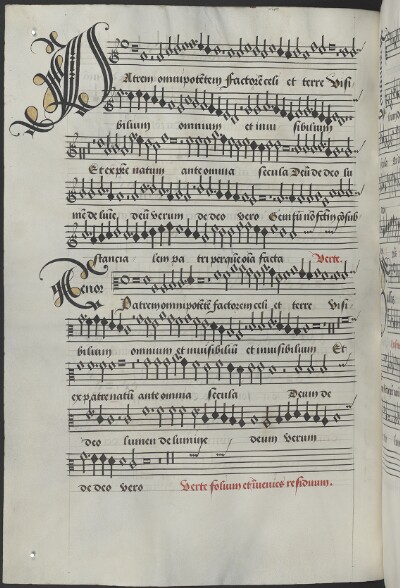 Patrem omnipotētem factorē celi et terre visi
bilium omnium et invi sibilium
Et ex pr̄e natum ante omnia secula Deū de deo lu
mē de lumīe, deū verum de deo vero Genitū nō factū cōsub
stancia lem pa tri per quē oīa facta Verte.
Tenor
Patrem omnipotētē factorem celi et terre visi
bilium omnium et invisibiliū et invisibilium Et
ex patre natū ante omnia secula Deum de
deo lumen de lumine deum verum
de deo vero Verte folium et invenies residuum.